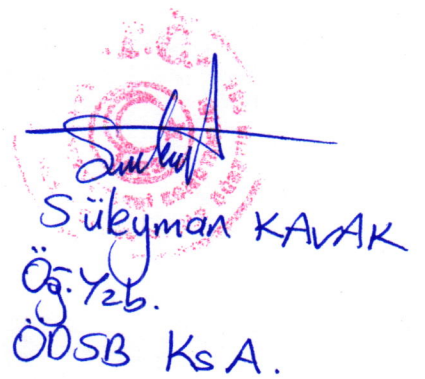 Süleyman KAVAK
Öğ. Yzb.
ÖDSB Ks A.